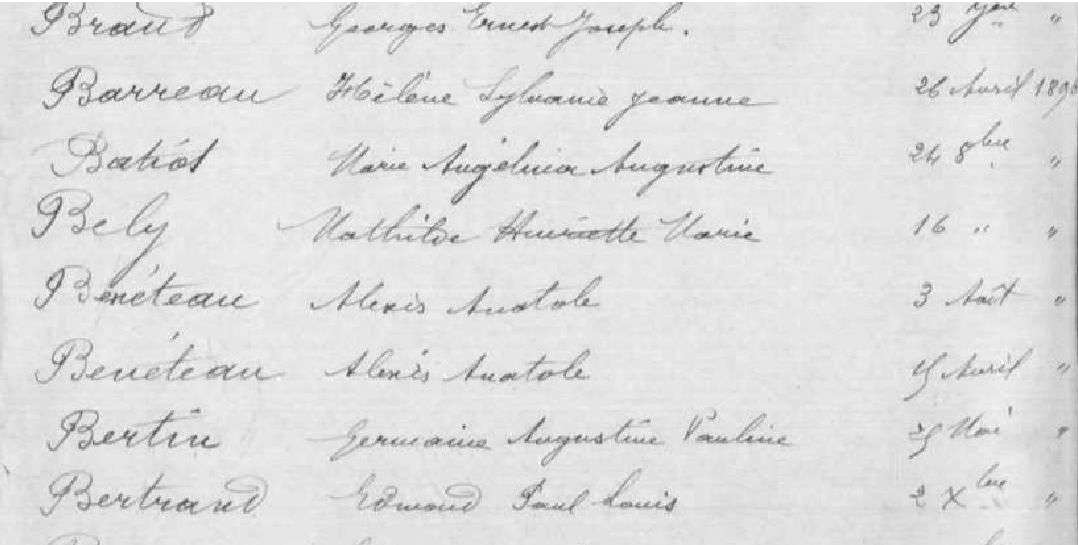 Braud Georges Ernest Joseph. 23 9bre "
Barreau Hélène Sylvanie Jeanne 26 Avril 189
Batiot Marie Angélina Augustine 24 8bre "
Bely Mathilde Henriette Marie 16 " "
Benéteau Alexis Anatole 3 Août "
Benéteau Alexis Anatole 15 Avril "
Bertin Germaine Augustine Pauline 25 Mai "
Bertrand Edmond Paul Louis 2 Xbre "